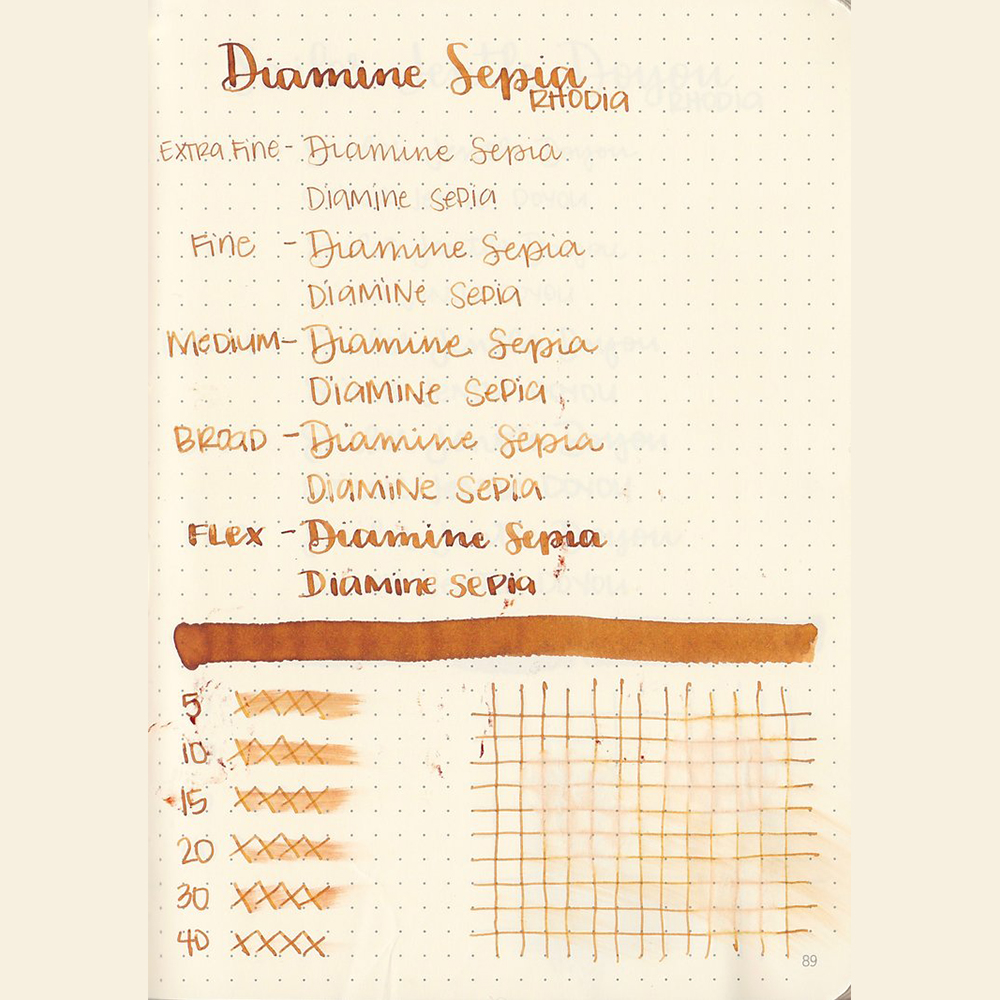 Diamine Sepia
RHODIA
EXTRA FiNe - Diamine Sepia
DiAMiNe SePiA
FiNe - Diamine Sepia
DiAMiNe SePiA
MeDiUM - Diamine Sepia
DiAMiNe SePiA
BROAD - Diamine Sepia
DiAMiNe SePiA
FLeX - Diamine Sepia
DiAMiNe SePiA
5 XXXX
10 XXXX
15 XXXX
20 XXXX
30 XXXX
40 XXXX
89